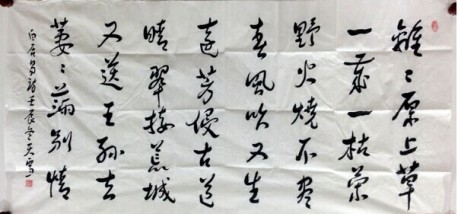 離〻原上草
一歲一枯榮
野火燒不盡
春風吹又生
遠芳侵古道
晴翠接荒城
又送王孫去
萋〻滿別情
白居易詩壬辰冬天寫